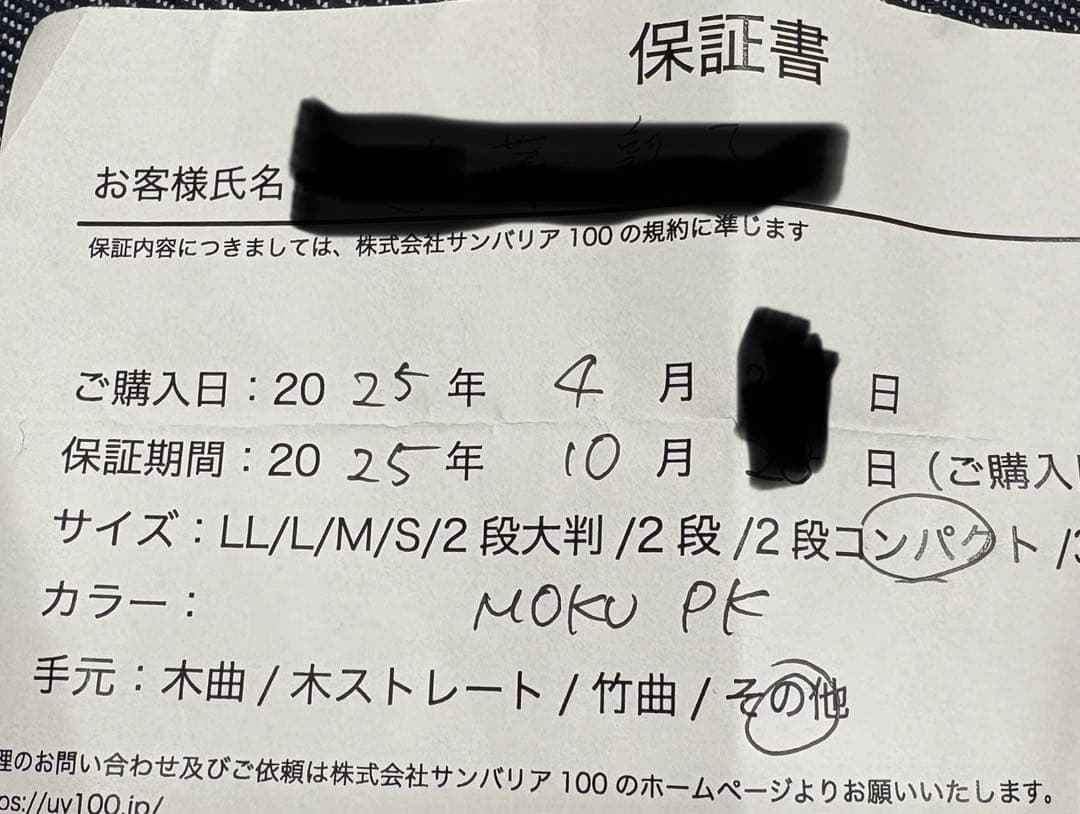 保証書
お客様氏名
保証内容につきましては、株式会社サンバリア100の規約に準じます
ご購入日：2025年 4月 日
保証期間：2025年 10月 日（ご購入
サイズ：LL/L/M/S/2段大判/2段/2段コンパクト/3
カラー： MOKU PK
手元：木曲/木ストレート/竹曲/その他
理のお問い合わせ及びご依頼は株式会社サンバリア100のホームページよりお願いいたします。
ps://uv100.jp/